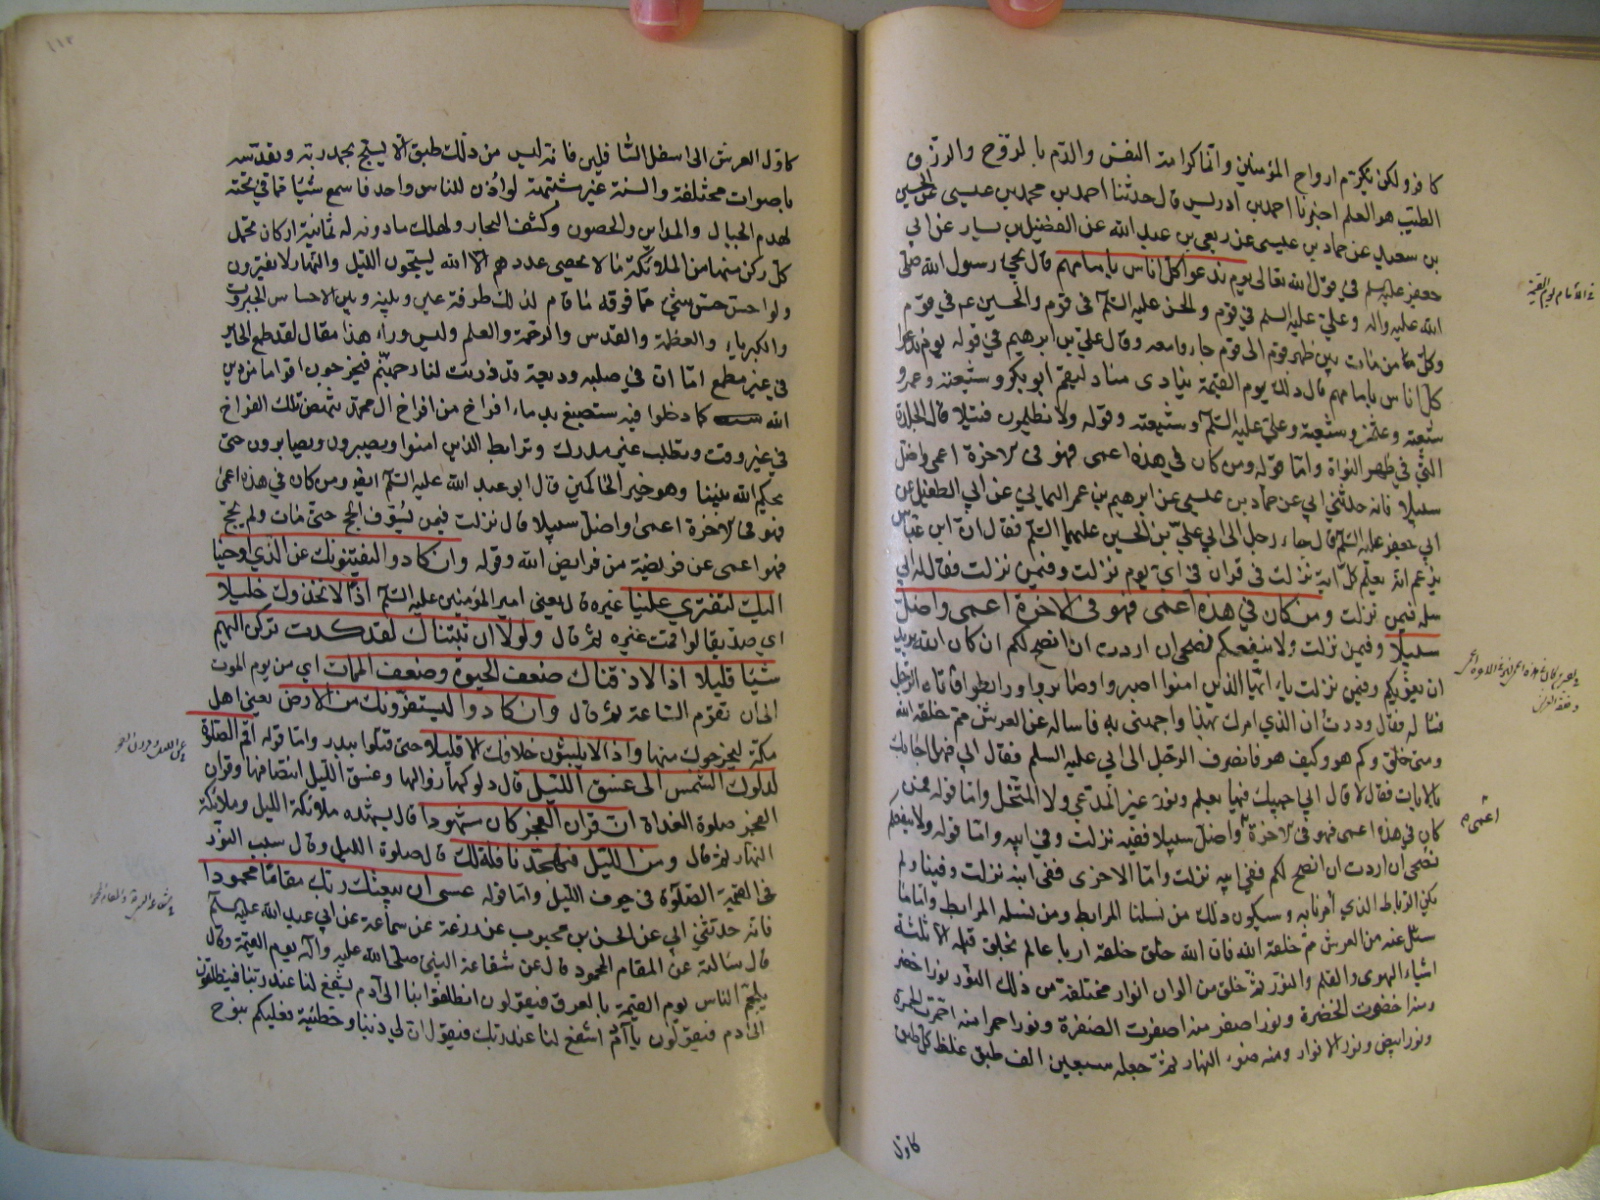 كافرو لكن يكرم ارواح المؤمنين وانما كرامة النفس والدم بالروح والرزق
الطيب هو العلم اخبرنا احمد بن ادريس قال حدثنا احمد بن محمد بن عيسى عن الحسين
بن سعيد عن حماد بن عيسى عن ربعي بن عبد الله عن الفضيل بن يسار عن ابي
جعفر عليه السلم في قول الله تعالى يوم ندعوا كل اناس بامامهم قال يجئ رسول الله صلى
الله عليه واله وعلي عليه السلم في قوم والحسن عليه السلم في قوم والحسين عم في قوم
وكل من مات بين ظهر قوم الى قوم جاءوا معه وقال علي بن ابرهيم في قوله يوم ندعوا
كل اناس بامامهم قال ذلك يوم القيمة ينادى مناد ليقم ابو بكر وشيعته وعمر و
شيعته وعثمن وشيعته وعلي عليه السلم وشيعته وقوله ولا يظلمون فتيلا قال الجلدة
التي في ظهر النواة واما قوله ومن كان في هذه اعمى فهو فى الاخرة اعمى واضل
سبيلا فانه حدثني ابي عن حماد بن عيسى عن ابرهيم بن عمر اليماني عن ابي الطفيل عن
ابي جعفر عليه السلم قال جاء رجل الى ابي علي بن الحسين عليهما السلم فقال ان ابن عباس
يزعم انه يعلم كل اية نزلت في قران في اي يوم نزلت وفيمن نزلت فقال ابي
سله فيمن نزلت ومن كان في هذه اعمى فهو فى الاخرة اعمى واضل
سبيلا وفيمن نزلت ولا ينفعكم نصحي ان اردت ان انصح لكم ان كان الله يريد
ان يغويكم وفيمن نزلت يا ايها الذين امنوا اصبروا وصابروا ورابطوا فاتاه الرجل
فساله فقال وددت ان الذي امرك بهذا واجهني به فاساله عن العرش مم خلقه الله
ومتى خلق وكم هو وكيف هو فانصرف الرجل الى ابي عليه السلم فقال ابي فهل اجابك
بالايات فقال لا قال ابي اجيبك فيها بعلم ونور غير المدعي ولا المنتحل واما قوله ومن
كان في هذه اعمى فهو فى الاخرة واضل سبيلا ففيه نزلت وفي ابيه واما قوله ولا ينفعكم
نصحي ان اردت ان انصح لكم ففي ابيه نزلت واما الاخرى ففي ابنه نزلت وفينا ولم
يكن الرباط الذي امرنا به وسيكون ذلك من نسلنا المرابط ومن نسله المرابط واما ما
سئل عنه من العرش مم خلقه الله فان الله خلق خلقه اربا عالم يخلق قبله الا ثلثة
اشياء الهوى والقلم والنور ثم خلق من الوان انوار مختلفة من ذلك النور نور اخضر
ومنه اخضرت الخضرة ونور اصفر منه اصفرت الصفرة ونور احمر منه احمرت الحمرة
ونور ابيض ونور الانوار ومنه ضوء النهار ثم جعله سبعين الف طبق غلظ كل طبق
كاول
اعمى
كاول العرش الى اسفل السافلين فانه ليس من ذلك طبق الا يسبح بحمد ربه ويقدسه
باصوات مختلفة والسنة غير مشتبهة لو اذن للناس واحد فاسمع شيئا مما في تحته
لهدم الجبال والمداين والحصون وكشف البحار ولهلك ما دونه له ثمانية اركان محتمل
كل ركن منها من الملائكة ما لا يحصى عددهم الا الله يسبحون الليل والنهار لا يفترون
ولو احس حس شيء مما فوقه ما قام لذلك طرفة عين وبينه وبين الاحساس الجبروت
والكبرياء والعظمة والقدس والرحمة والعلم وليس وراء هذا مقال لقد طمع الحائر
في غير مطمع اما ان في صلبه وديعة قد ذريت لنار جهنم فيخرجون اقواما من دين
الله كما دخلوا فيه ستصبغ بدماء افراخ من افراخ ال محمد تنهض تلك الفراخ
في غير وقت وتطلب غير مدرك وترابط الذين امنوا ويصبرون ويصابرون حتى
يحكم الله بيننا وهو خير الحاكمين قال ابو عبد الله عليه السلم ايضا ومن كان في هذه اعمى
فهو فى الاخرة اعمى واضل سبيلا قال نزلت فيمن يسوف الحج حتى مات ولم يحج
فهو اعمى عن فريضة من فرايض الله وقوله وان كادوا ليفتنونك عن الذي اوحينا
اليك لتفتري علينا غيره قال يعني امير المؤمنين عليه السلم اذا لاتخذوك خليلا
اي صديقا لو اقمت غيره ثم قال ولولا ان ثبتناك لقد كدت تركن اليهم
شيئا قليلا اذا لاذقناك ضعف الحيوة وضعف الممات اي من يوم الموت
الى ان تقوم الساعة ثم قال وان كادوا ليستفزونك من الارض يعني اهل
مكة ليخرجوك منها واذا لا يلبثون خلافك الا قليلا حتى قتلوا ببدر واما قوله اقم الصلوة
لدلوك الشمس الى غسق الليل قال دلوكها زوالها وغسق الليل انتصافها وقران
الفجر صلوة الغداة ان قران الفجر كان مشهودا قال يشهده ملائكة الليل وملائكة
النهار ثم قال ومن الليل فتهجد به نافلة لك قال صلوة الليل وقال سبب النور
في القيمة الصلوة في جوف الليل واما قوله عسى ان يبعثك ربك مقاما محمودا
فانه حدثني ابي عن الحسن بن محبوب عن زرعة عن سماعة عن ابي عبد الله عليه السلم
قال سالته عن المقام المحمود قال عن شفاعة النبي صلى الله عليه واله يوم القيمة وقال
يلجم الناس يوم القيمة بالعرق فيقولون انطلقوا بنا الى آدم يشفع لنا عند ربنا فينطلقون
الى ادم فيقولون يا آدم اشفع لنا عند ربك فيقول ان لي ذنبا وخطيئة فعليكم بنوح